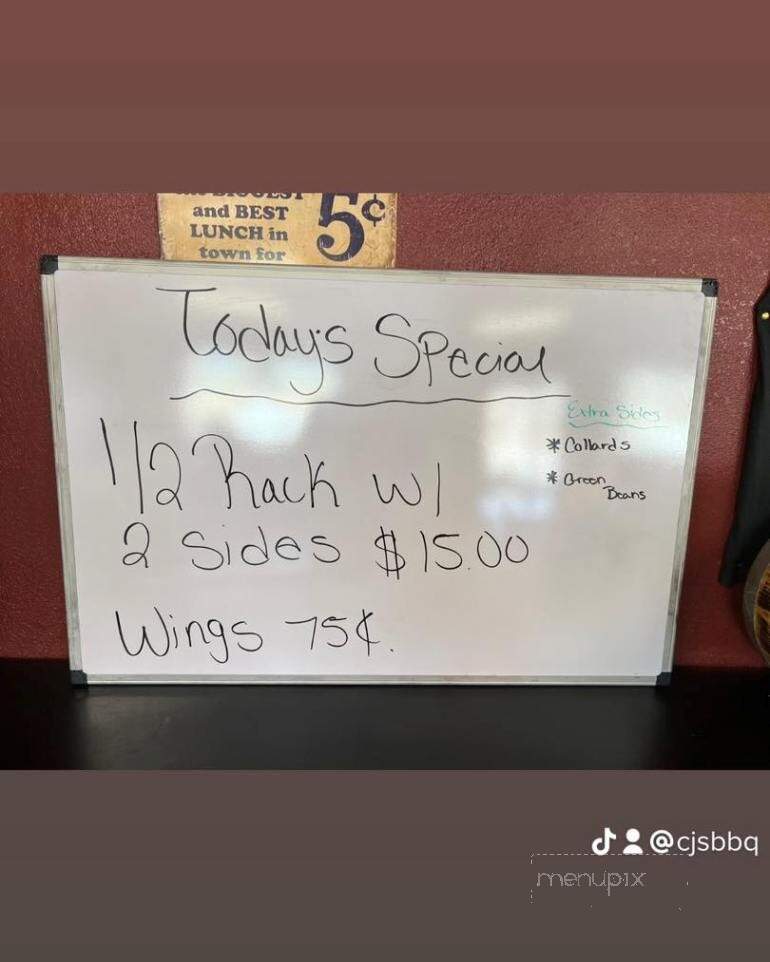 and BEST
LUNCH in
town for
5¢
Today's Special
Extra Sides
* Collards
* Green
Beans
1/2 Rack w/
2 Sides $15.00
Wings 75¢.
@cjsbbq
menupix